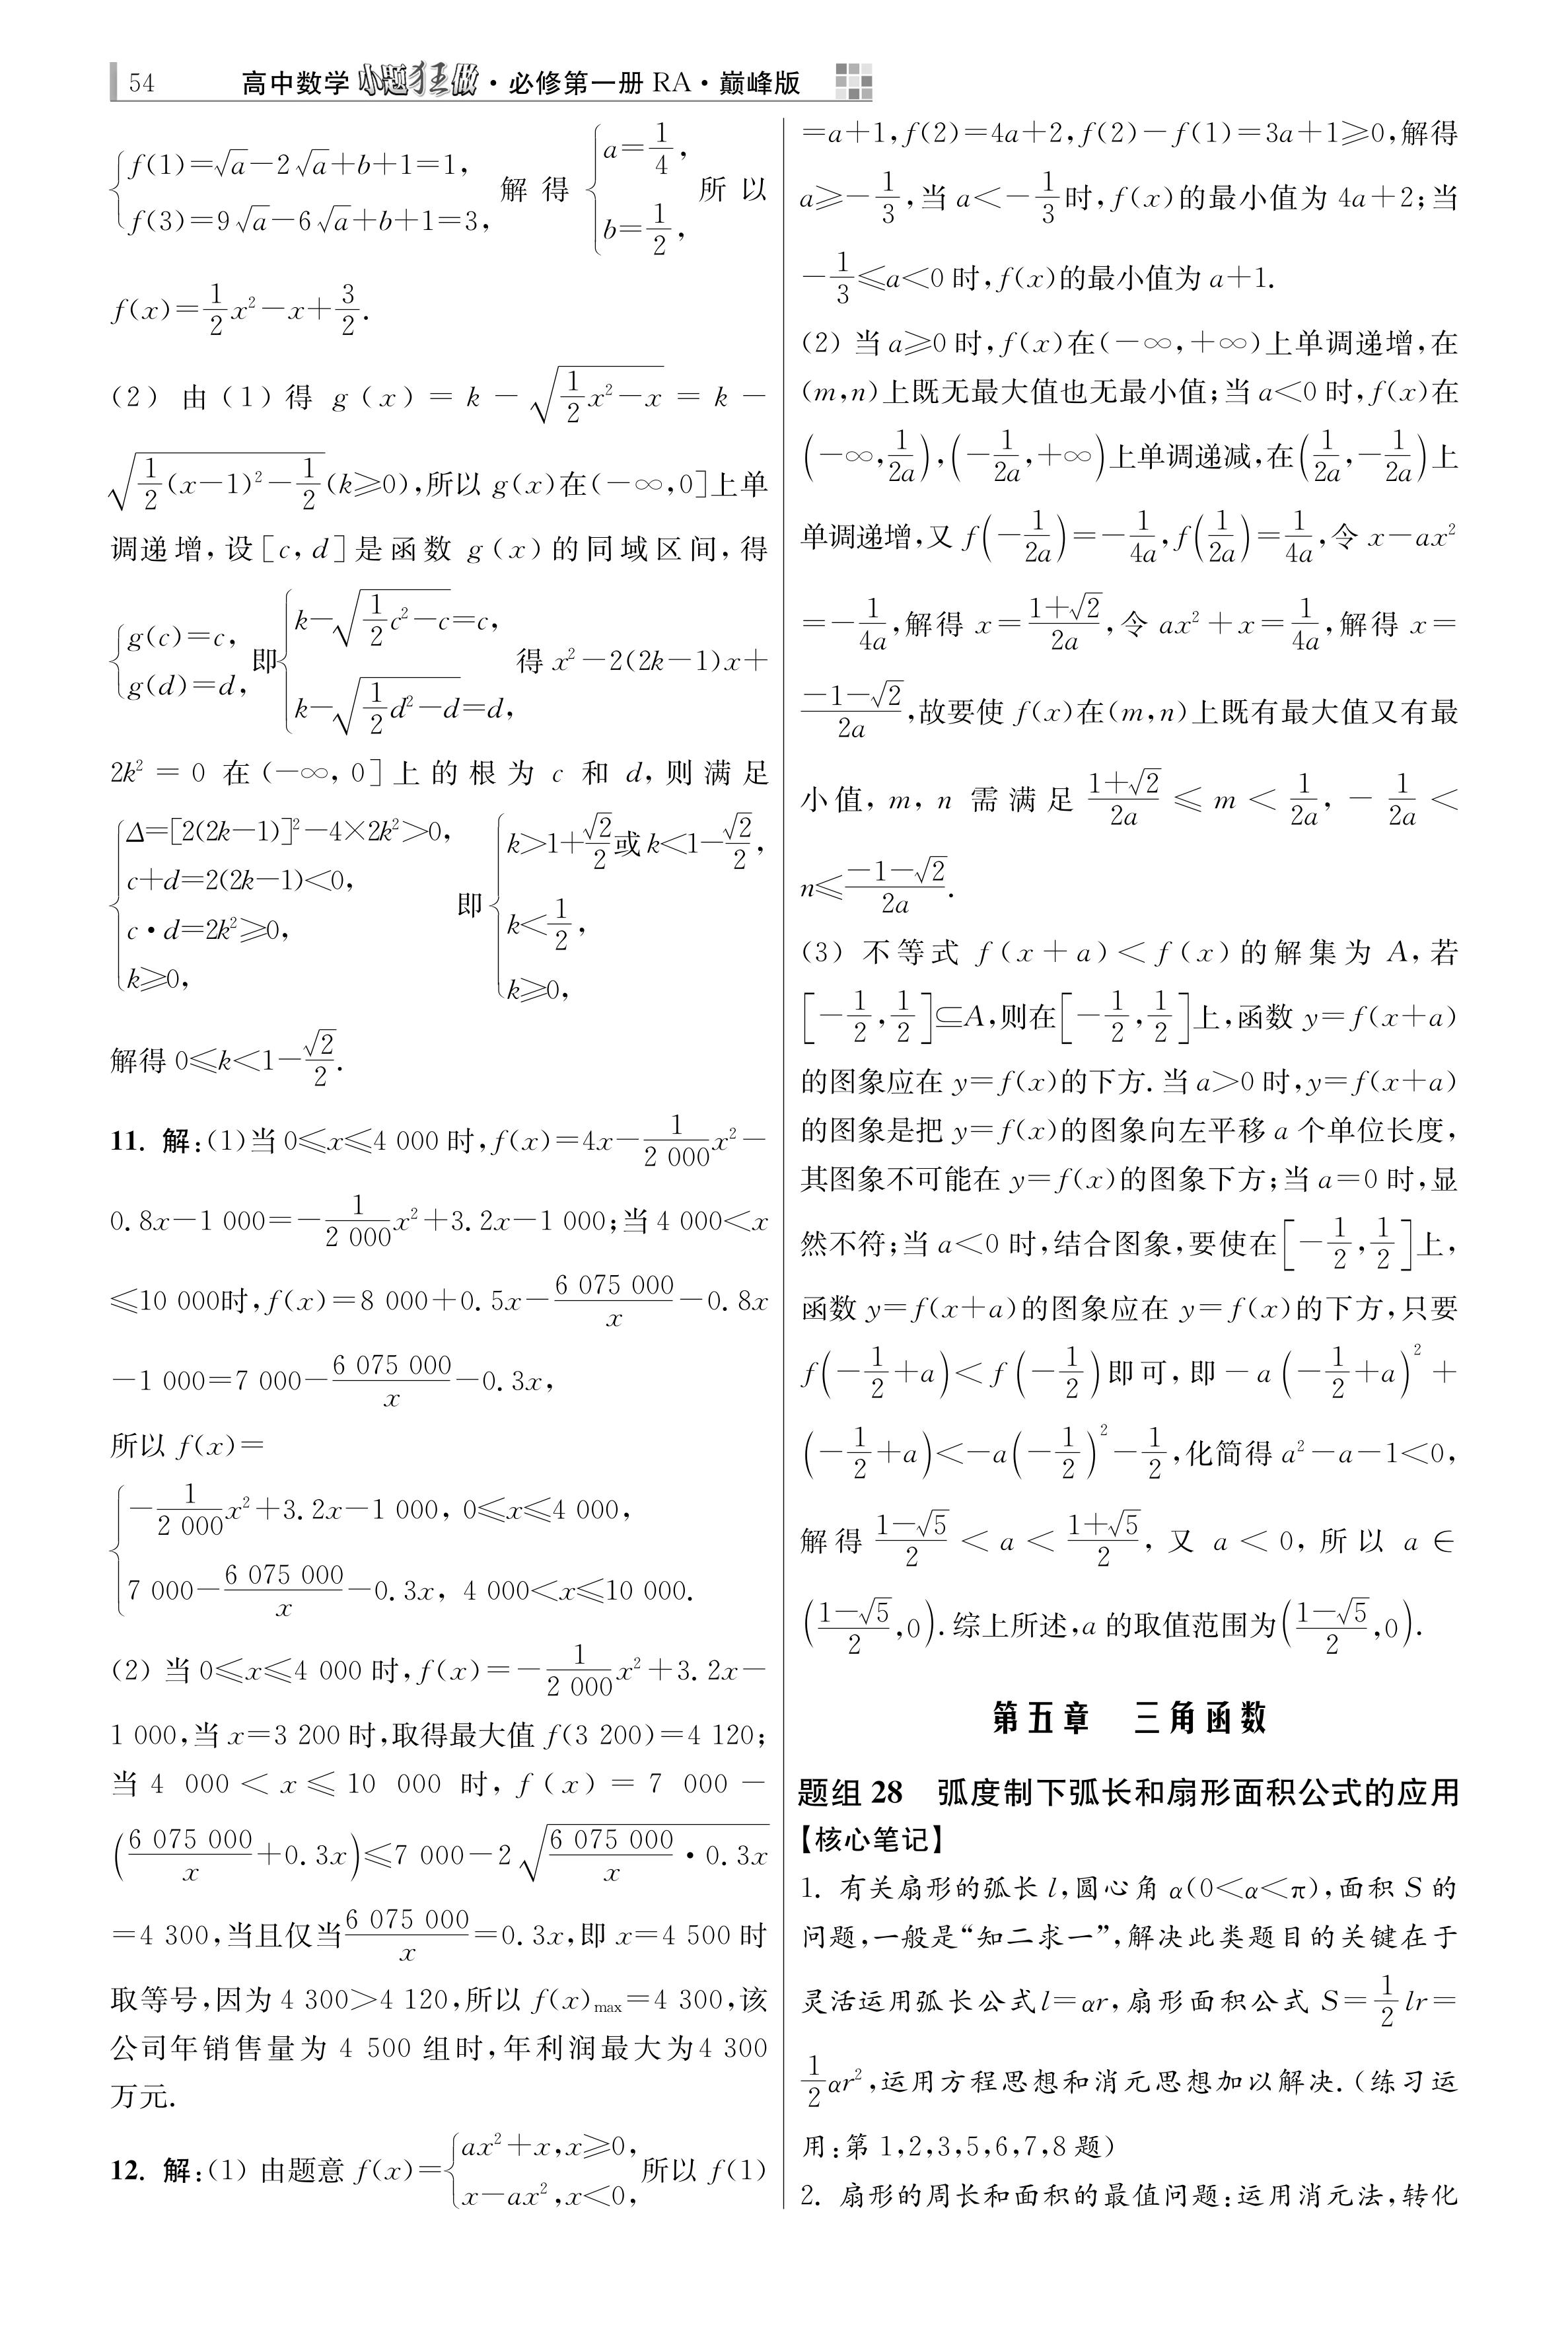 54 高中数学 小题狂做·必修第一册 RA·巅峰版
{f(1)=√a-2√a+b+1=1, f(3)=9√a-6√a+b+1=3, 解得 {a=1/4, b=1/2, 所以
f(x)=1/2x²-x+3/2.
(2) 由(1)得 g(x)=k-√(1/2x²-x)=k-
√(1/2(x-1)²-1/2)(k≥0),所以 g(x)在(-∞,0]上单
调递增,设[c,d]是函数 g(x)的同域区间,得
{g(c)=c, g(d)=d, 即{k-√(1/2c²-c)=c, k-√(1/2d²-d)=d, 得 x²-2(2k-1)x+
2k²=0 在(-∞,0]上的根为 c 和 d,则满足
{Δ=[2(2k-1)]²-4×2k²>0, c+d=2(2k-1)<0, c·d=2k²≥0, k≥0, 即{k>1+√2/2或 k<1-√2/2, k<1/2, k≥0,
解得 0≤k<1-√2/2.
11. 解:(1)当 0≤x≤4 000 时,f(x)=4x-1/2 000x²-
0.8x-1 000=-1/2 000x²+3.2x-1 000;当 4 000<x
≤10 000时,f(x)=8 000+0.5x-6 075 000/x-0.8x
-1 000=7 000-6 075 000/x-0.3x,
所以 f(x)=
{-1/2 000x²+3.2x-1 000, 0≤x≤4 000,
7 000-6 075 000/x-0.3x, 4 000<x≤10 000.
(2) 当 0≤x≤4 000 时,f(x)=-1/2 000x²+3.2x-
1 000,当 x=3 200 时,取得最大值 f(3 200)=4 120;
当 4 000<x≤10 000 时,f(x)=7 000-
(6 075 000/x+0.3x)≤7 000-2√(6 075 000/x·0.3x)
=4 300,当且仅当6 075 000/x=0.3x,即 x=4 500 时
取等号,因为 4 300>4 120,所以 f(x)max=4 300,该
公司年销售量为 4 500 组时,年利润最大为4 300
万元.
12. 解:(1) 由题意 f(x)={ax²+x,x≥0, x-ax²,x<0, 所以 f(1)
=a+1,f(2)=4a+2,f(2)-f(1)=3a+1≥0,解得
a≥-1/3,当 a<-1/3时,f(x)的最小值为 4a+2;当
-1/3≤a<0 时,f(x)的最小值为 a+1.
(2) 当 a≥0 时,f(x)在(-∞,+∞)上单调递增,在
(m,n)上既无最大值也无最小值;当 a<0 时,f(x)在
(-∞,1/2a),(-1/2a,+∞)上单调递减,在(1/2a,-1/2a)上
单调递增,又 f(-1/2a)=-1/4a,f(1/2a)=1/4a,令 x-ax²
=-1/4a,解得 x=(1+√2)/2a,令 ax²+x=1/4a,解得 x=
(-1-√2)/2a,故要使 f(x)在(m,n)上既有最大值又有最
小值,m,n 需满足 (1+√2)/2a≤m<1/2a,-1/2a<
n≤(-1-√2)/2a.
(3) 不等式 f(x+a)<f(x)的解集为 A,若
[-1/2,1/2]⊆A,则在[-1/2,1/2]上,函数 y=f(x+a)
的图象应在 y=f(x)的下方.当 a>0 时,y=f(x+a)
的图象是把 y=f(x)的图象向左平移 a 个单位长度,
其图象不可能在 y=f(x)的图象下方;当 a=0 时,显
然不符;当 a<0 时,结合图象,要使在[-1/2,1/2]上,
函数 y=f(x+a)的图象应在 y=f(x)的下方,只要
f(-1/2+a)<f(-1/2)即可,即-a(-1/2+a)²+
(-1/2+a)<-a(-1/2)²-1/2,化简得 a²-a-1<0,
解得 (1-√5)/2<a<(1+√5)/2,又 a<0,所以 a∈
((1-√5)/2,0).综上所述,a 的取值范围为((1-√5)/2,0).
第五章 三角函数
题组 28 弧度制下弧长和扇形面积公式的应用
【核心笔记】
1. 有关扇形的弧长 l,圆心角 α(0<α<π),面积 S 的
问题,一般是“知二求一”,解决此类题目的关键在于
灵活运用弧长公式l=αr,扇形面积公式 S=1/2lr=
1/2αr²,运用方程思想和消元思想加以解决.(练习运
用:第 1,2,3,5,6,7,8 题)
2. 扇形的周长和面积的最值问题:运用消元法,转化